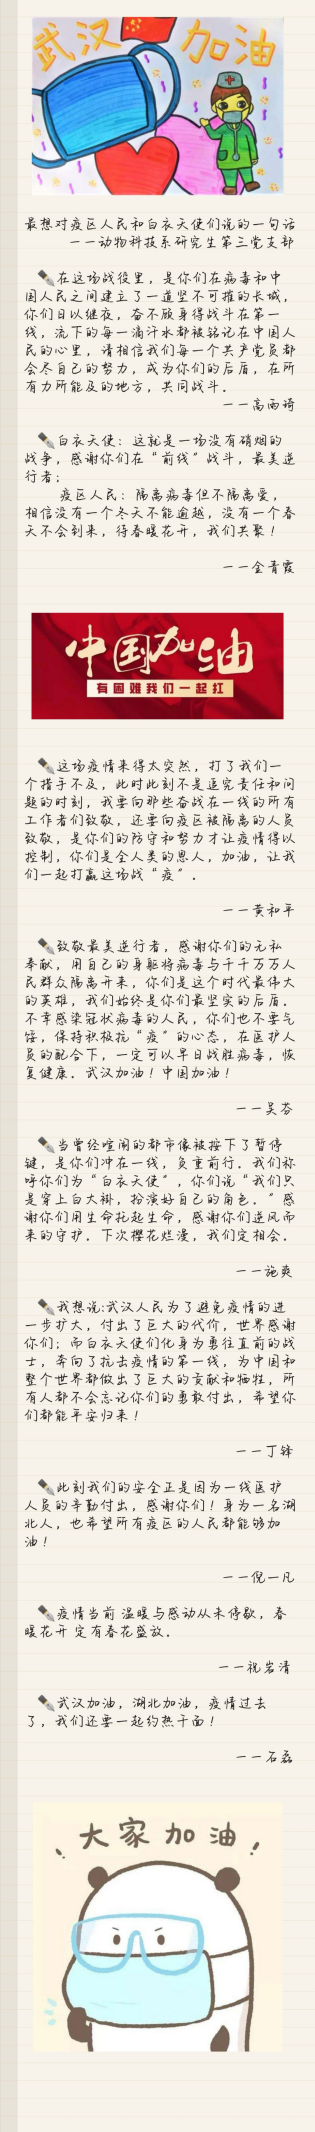 武汉 加油
最想对疫区人民和白衣天使们说的一句话
——动物科技系研究生第三党支部
在这场战役里，是你们在病毒和中
国人民之间建立了一道坚不可摧的长城，
你们日以继夜，奋不顾身得战斗在第一
线，流下的每一滴汗水都被铭记在中国人
民的心里，请相信我们每一个共产党员都
会尽自己的努力，成为你们的后盾，在所
有力所能及的地方，共同战斗。
——高雨琦
白衣天使：这就是一场没有硝烟的
战争，感谢你们在“前线”战斗，最美逆
行者；
疫区人民：隔离病毒但不隔离爱，
相信没有一个冬天不能逾越，没有一个春
天不会到来，待春暖花开，我们共聚！
——全青霞
中国加油
有困难我们一起扛
这场疫情来得太突然，打了我们一
个措手不及，此时此刻不是追究责任和问
题的时刻，我要向那些奋战在一线的所有
工作者们致敬，还要向疫区被隔离的人员
致敬，是你们的防守和努力才让疫情得以
控制，你们是全人类的恩人，加油，让我
们一起打赢这场战“疫”。
——黄和平
致敬最美逆行者，感谢你们的无私
奉献，用自己的身躯将病毒与千千万万人
民群众隔离开来，你们是这个时代最伟大
的英雄，我们始终是你们最坚实的后盾。
不幸感染冠状病毒的人民，你们也不要气
馁，保持积极抗“疫”的心态，在医护人
员的配合下，一定可以早日战胜病毒，恢
复健康。武汉加油！中国加油！
——吴芬
当曾经喧闹的都市像被按下了暂停
键，是你们冲在一线，负重前行。我们称
呼你们为“白衣天使”，你们说“我们只
是穿上白大褂，扮演好自己的角色。”感
谢你们用生命托起生命，感谢你们逆风而
来的守护。下次樱花烂漫，我们定相会。
——施爽
我想说:武汉人民为了避免疫情的进
一步扩大，付出了巨大的代价，世界感谢
你们；而白衣天使们化身为勇往直前的战
士，奔向了抗击疫情的第一线，为中国和
整个世界都做出了巨大的贡献和牺牲，所
有人都不会忘记你们的勇敢付出，希望你
们都能平安归来！
——丁锋
此刻我们的安全正是因为一线医护
人员的辛勤付出，感谢你们！身为一名湖
北人，也希望所有疫区的人民都能够加
油！
——倪一凡
疫情当前 温暖与感动从未停歇，春
暖花开 定有春花盛放。
——祝岩清
武汉加油，湖北加油，疫情过去
了，我们还要一起约热干面！
——石磊
大家加油！